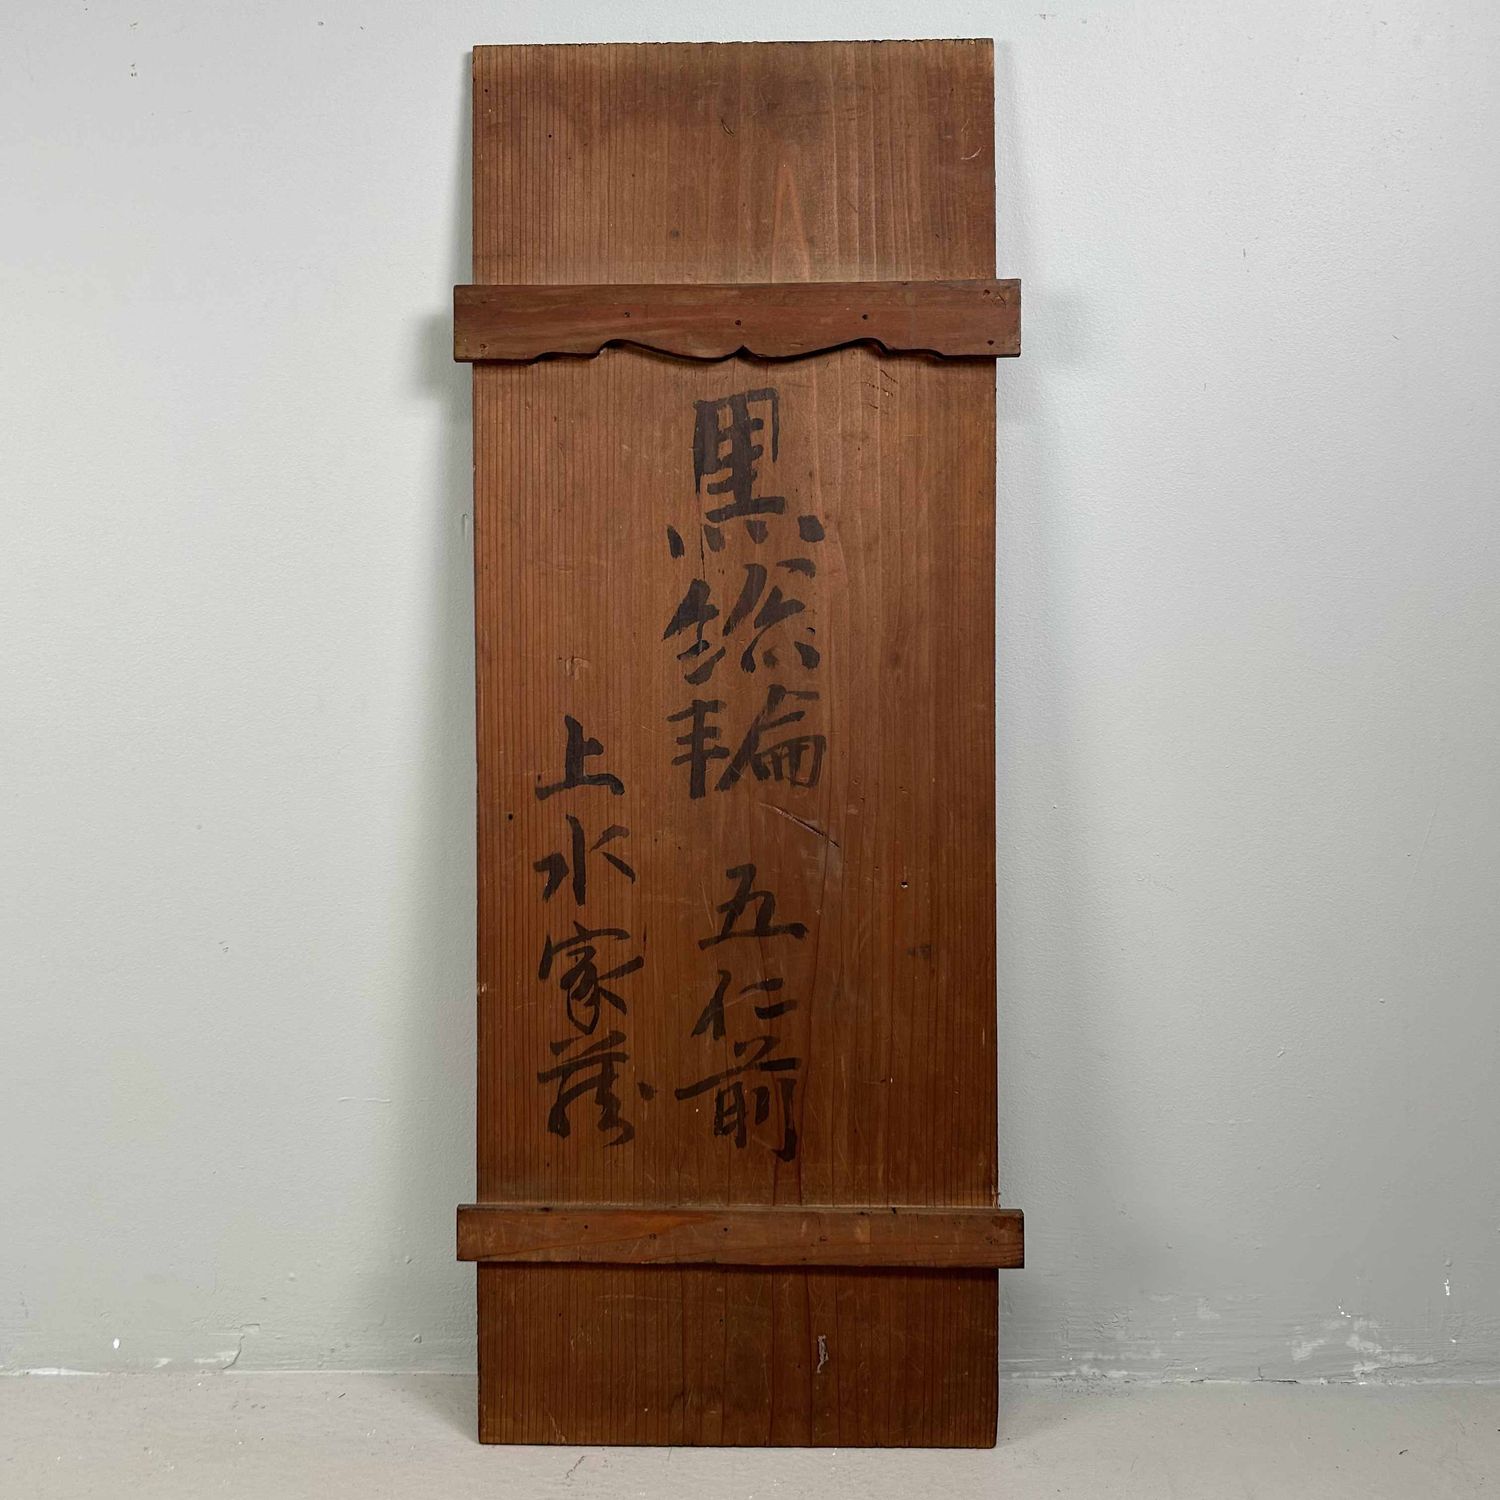 黒総輪 五仁前
上水家蔵